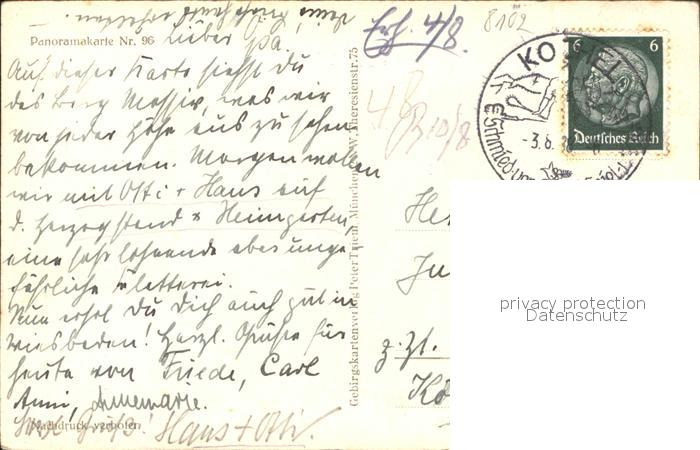 Panoramakarte Nr. 96
Lieber Pa
Auf dieser Karte siehst du
das Berg Massiv, was wir
von jeder Höhe aus zu sehen
bekommen. Morgen wollen
wir mit Otti + Hans auf
d. Herzogstand + Heimgarten,
eine sehr lohnende aber unge-
fährliche Kletterei.
Nun erhol Du Dich auch gut in
Wiesbaden! Herzl. Grüße für
heute von Friede, Carl
Anni, Annemarie.
Nachdruck verboten
Grüße! Hans + Otti.
Gebirgskartenverlag Peter Trient, München, Theresienstr. 75
Erh. 4/8.
8102
48
R 10/8
KOCHEL
-3.8.
6 6
Deutsches Reich
He
Ju
z. Zt.
Kö
privacy protection
Datenschutz